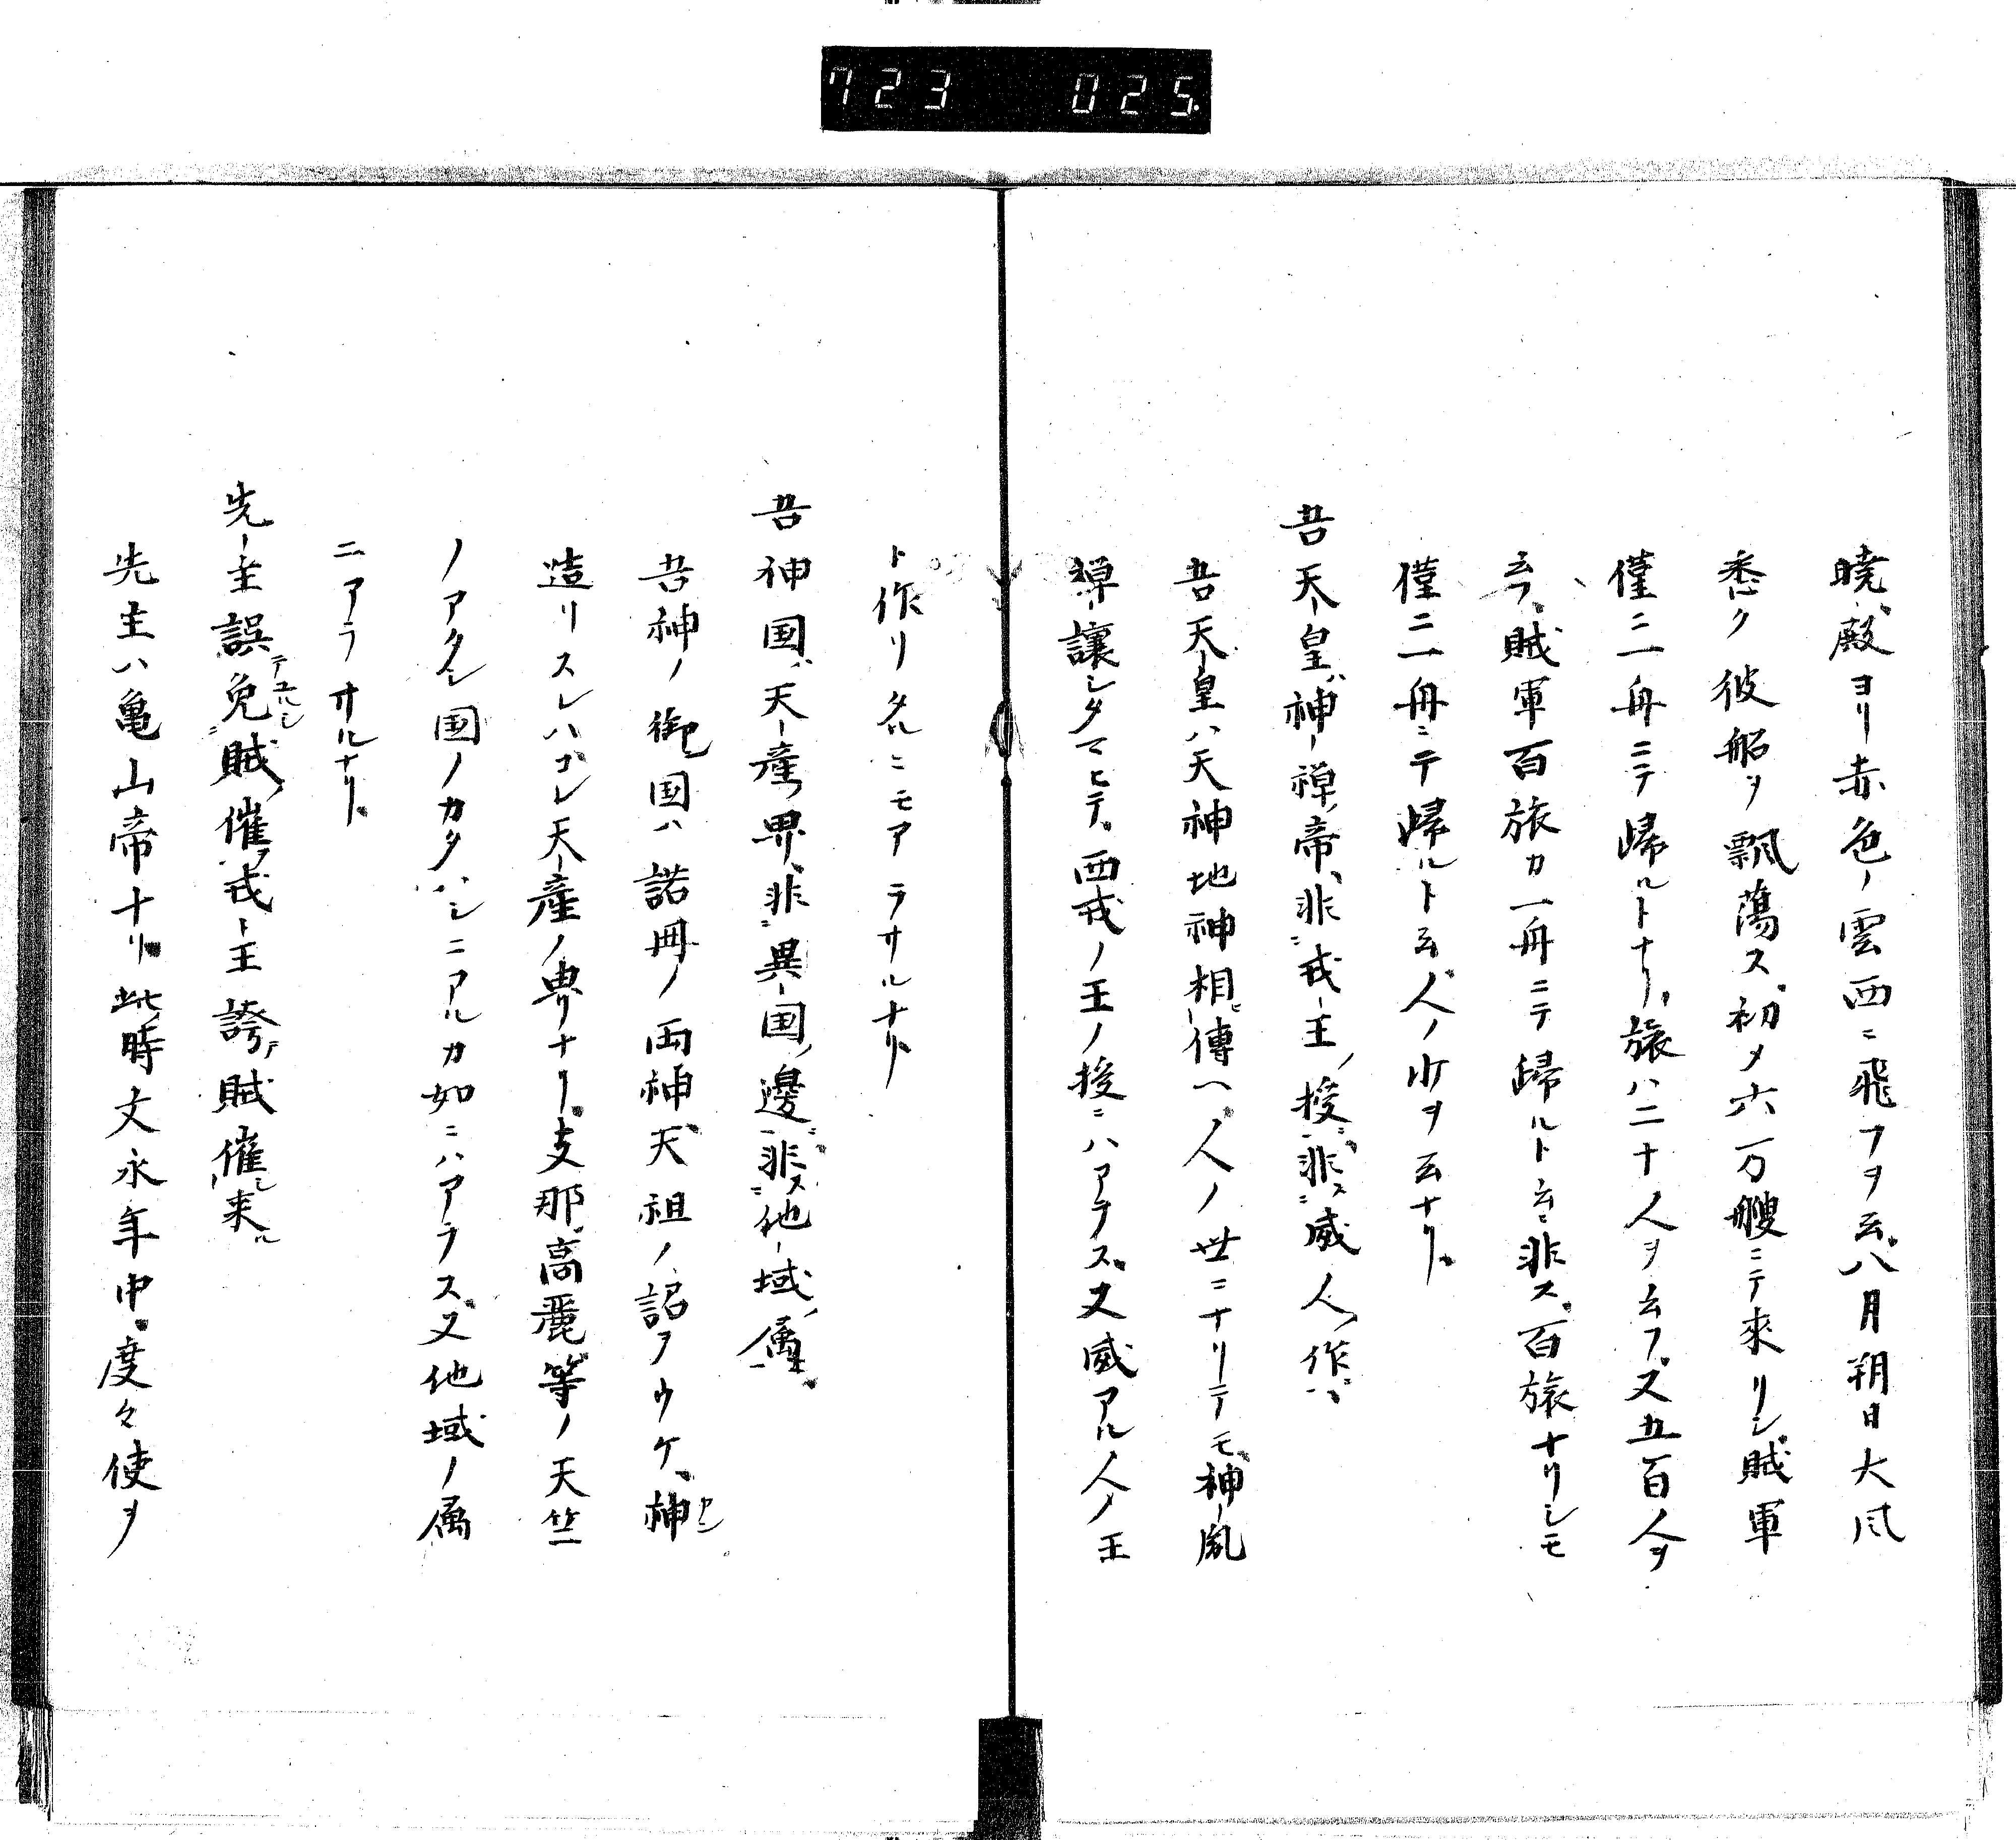 723 025
曉殿ヨリ赤色ノ雲西ニ飛フヲ云八月朔日大風
悉ク彼船ヲ飄蕩ス初メ六万艘ニテ來リシ賊軍
僅ニ一舟ニテ歸ルトナリ旅ハ二十人ヲ云フ又五百人ヲ
云フ賊軍百旅カ一舟ニテ歸ルト云ニ非ス百旅ナリシモ
僅ニ一舟ニテ歸ルト云人ノ少ヲ云ナリ
吾天皇ハ神禪ノ帝非戎王ノ授ニ非ス威人ノ作ニ
吾天皇ハ天神地神相傳ヘ人ノ世ニナリテモ神胤
禪讓シタマヒテ西戎ノ王ノ授ニハアラス又威アル人ノ王
ト作リタルニモアラサルナリ
吾神国ハ天産ノ界非異国ノ邊ニ非ス他域ノ属ニ
吾神ノ御国ハ諾冊ノ両神天祖ノ詔ヲウケ神
造リスレハコレ天産ノ界ナリ支那高麗等ノ天竺
ノアタシ国ノカタハシニアルカ如ニハアラス又他域ノ属
ニアラサルナリ
先主誤テユルシ免賊催ヲ戎王誇テ賊催シ来ル
先主ハ亀山帝ナリ此時文永年中度々使ヲ